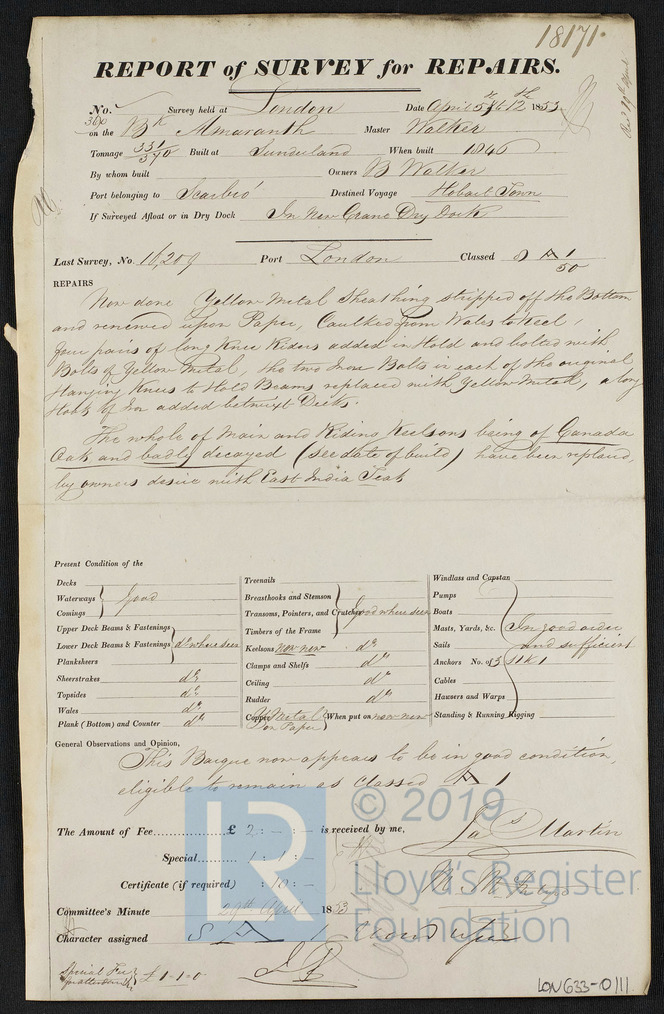 18171
REPORT of SURVEY for REPAIRS.
No. 360 Survey held at London Date April 5th 6 & 12th 1853
on the Bk Amaranth Master Walker
Tonnage 331/370 Built at Sunderland When built 1846
By whom built Owners B Walker
Port belonging to Scarbro' Destined Voyage Hobart Town
If Surveyed Afloat or in Dry Dock In New Crane Dry Dock
Last Survey, No. 16,209 Port London Classed 8 A 1
50
REPAIRS
Now done Yellow Metal Sheathing stripped off the Bottom
and renewed upon Paper, Caulked from Wales to Keel,
four pairs of long Knee Riders added in Hold and bolted with
Bolts of Yellow Metal, the two Iron Bolts in each of the original
Hanging Knees to Hold Beams replaced with Yellow Metal, a long
Hook of Iron added betwixt Decks.
The whole of Main and Riding Keelsons being of Canada
Oak and badly decayed (see date of build) have been replaced,
by owners desire with East India Teak
Present Condition of the
Decks
Waterways Good
Comings
Upper Deck Beams & Fastenings
Lower Deck Beams & Fastenings do where seen
Planksheers
Sheerstrakes do
Topsides do
Wales do
Plank (Bottom) and Counter do
Treenails
Breasthooks and Stemson
Transoms, Pointers, and Crutches Good where seen
Timbers of the Frame
Keelsons now new do
Clamps and Shelfs do
Ceiling do
Rudder do
Copper Y Metal on Paper When put on now new
Windlass and Capstan
Pumps
Boats
Masts, Yards, &c. In good order
Sails and sufficient
Anchors No. of 3 S 1 K 1
Cables
Hawsers and Warps
Standing & Running Rigging
General Observations and Opinion,
This Barque now appears to be in good condition,
eligible to remain as Classed A 1
The Amount of Fee £ 2 : - : - is received by me,
Jas Martin
Special 1 : 1 : -
Certificate (if required) : 10 : -
Committee's Minute 29th April 1853
Character assigned 8 A 1
Special Fee
£1-1-0
LR
© 2019
Lloyd's Register
Foundation
LON633-0111